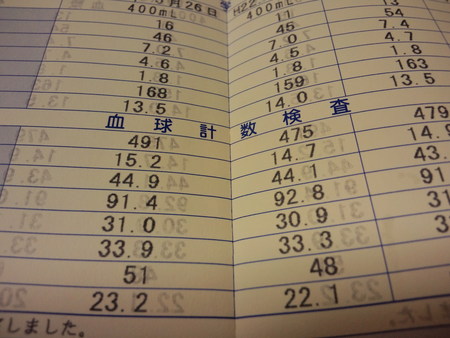 月26日 H22.
400mL 400mL
16 11
46 45 54
7.2 7.0 7.4
4.6 4.5 4.7
1.8 1.8 1.8
168 159 163
13.5 14.0 13.5
血球計数検査
491 475 479
15.2 14.7 14.9
44.9 44.1 43.
91.4 92.8 91
31.0 30.9 31
33.9 33.3
51 48
23.2 22.1
しました。